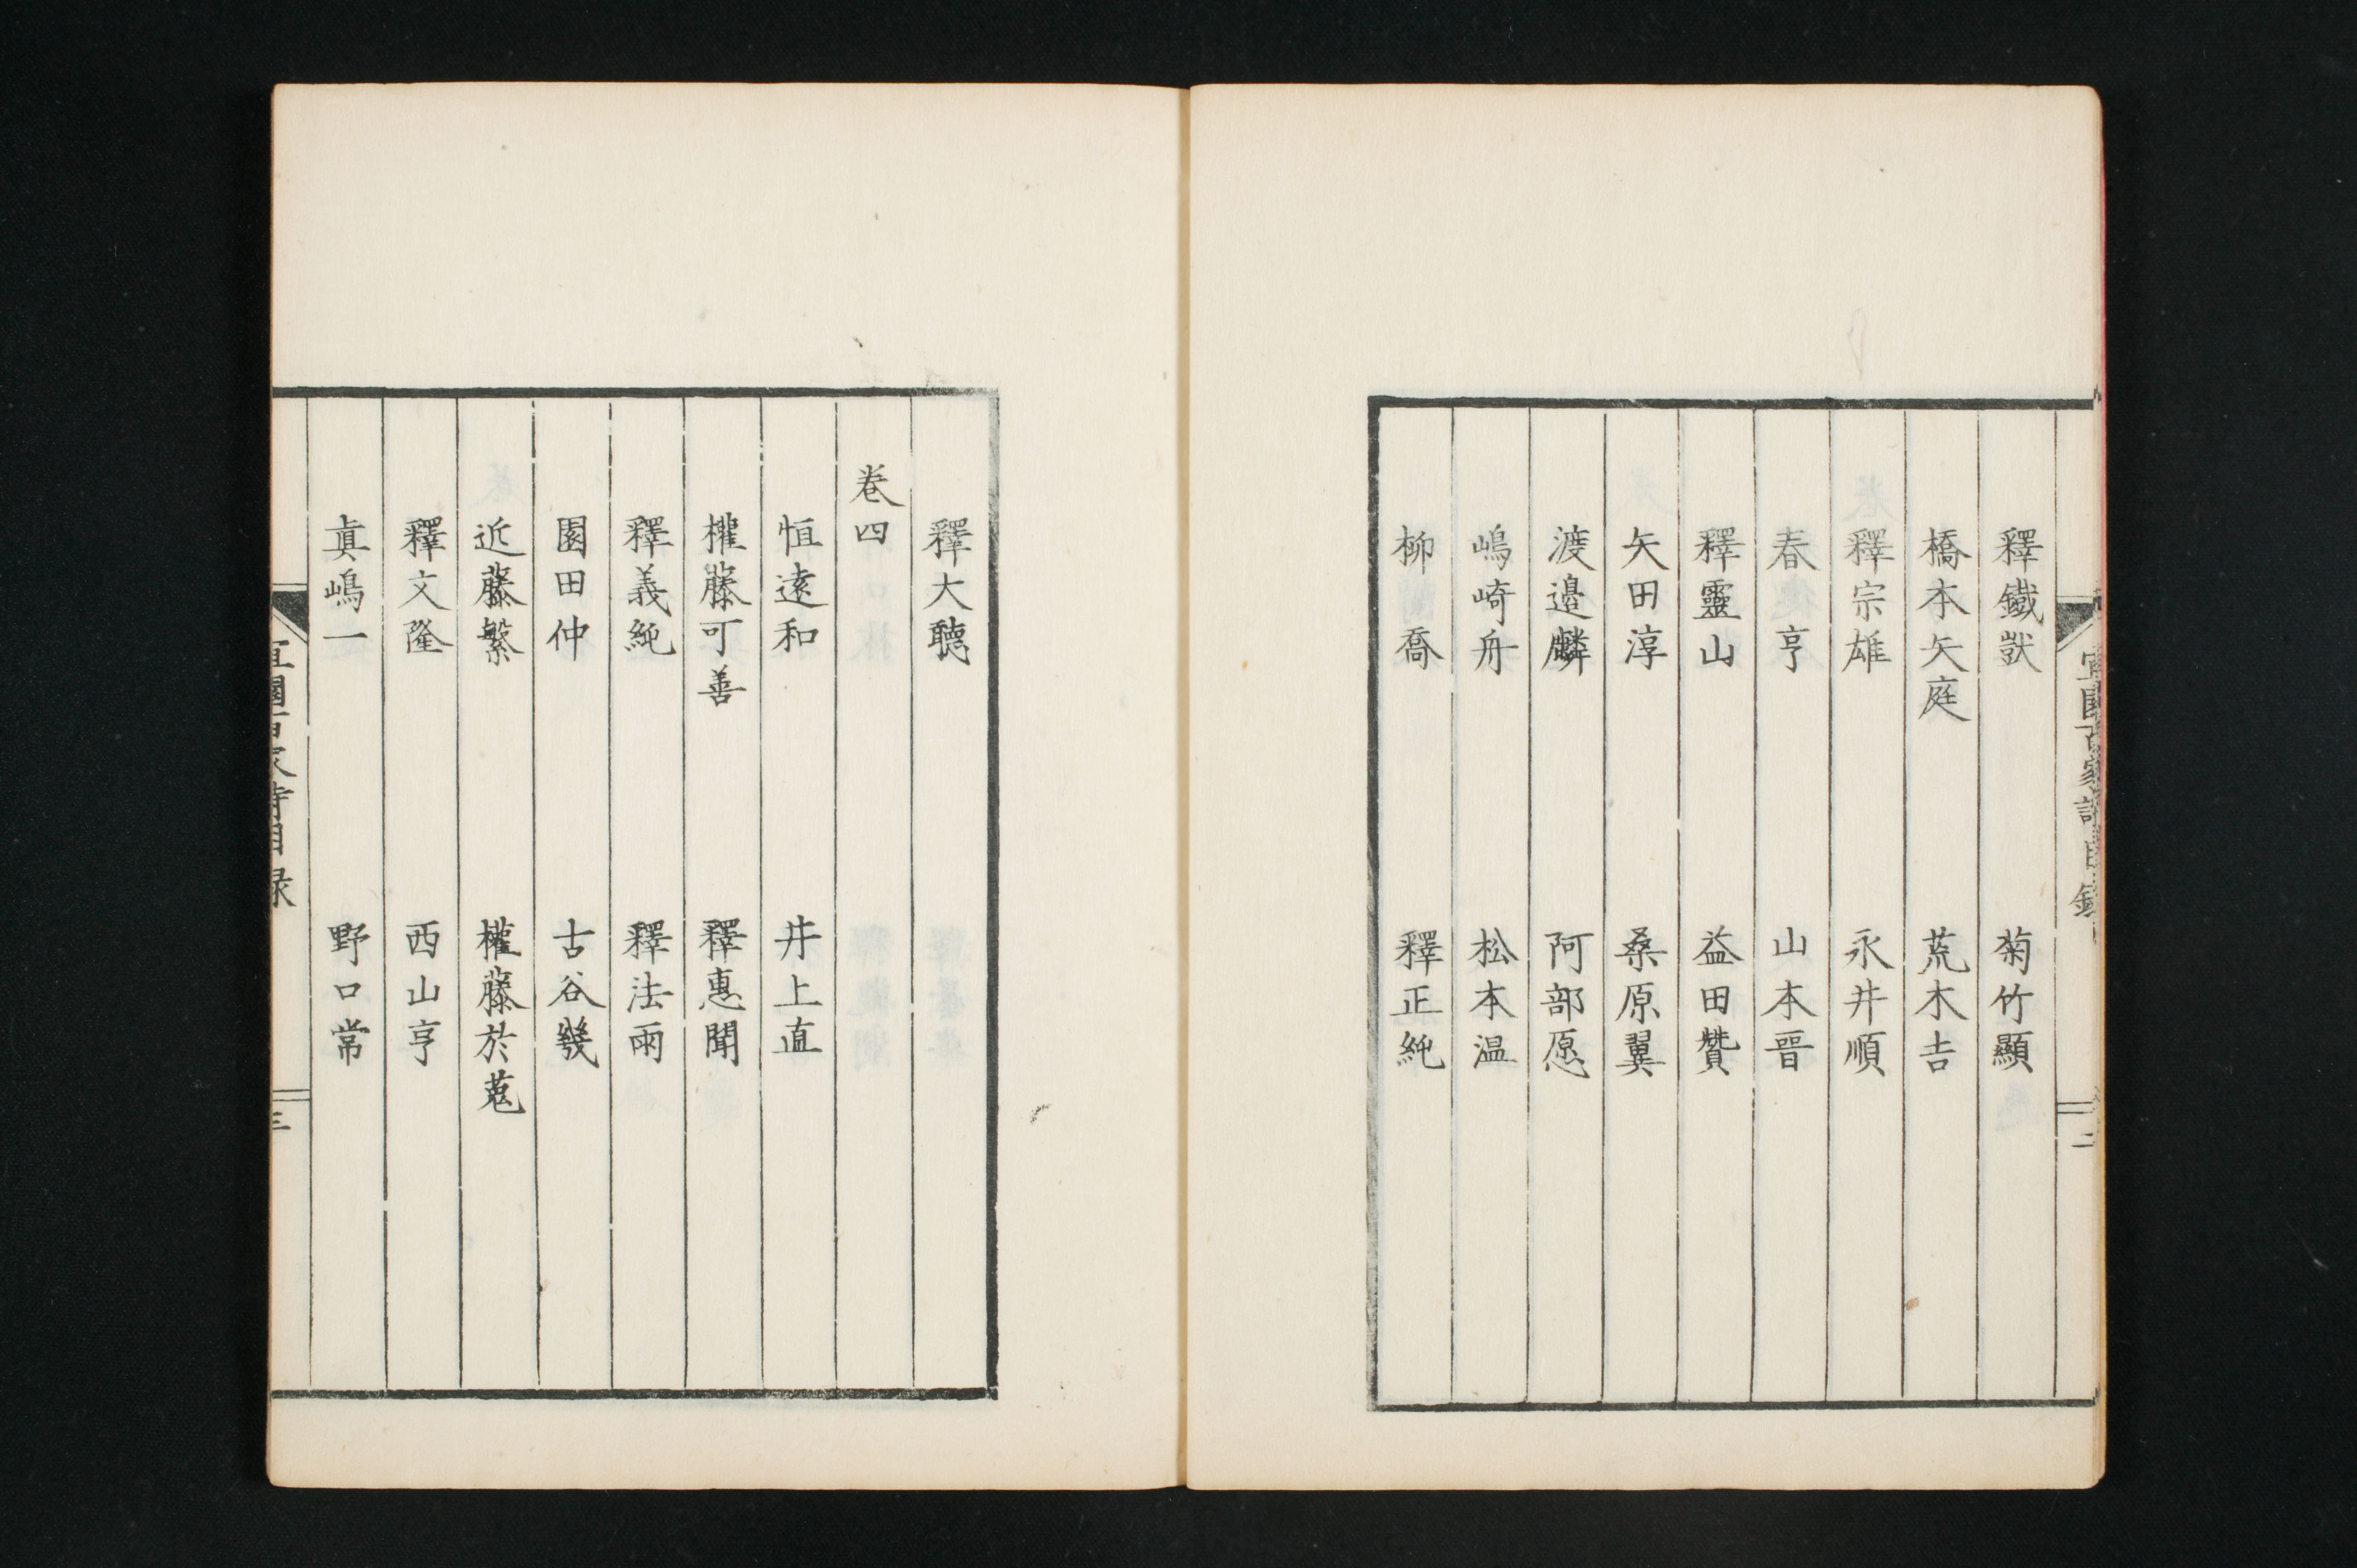 釋鐵獃 菊竹顯
橋本矢庭 荒木吉
釋宗雄 永井順
春亨 山本晉
釋靈山 益田贊
矢田淳 桑原翼
渡邉麟 阿部愿
嶋崎舟 松本温
柳喬 釋正純
釋大聽
卷四
恒遠和 井上直
權藤可善 釋惠聞
釋義純 釋法雨
園田仲 古谷幾
近藤繁 權藤於菟
釋文隆 西山亨
眞嶋一 野口常